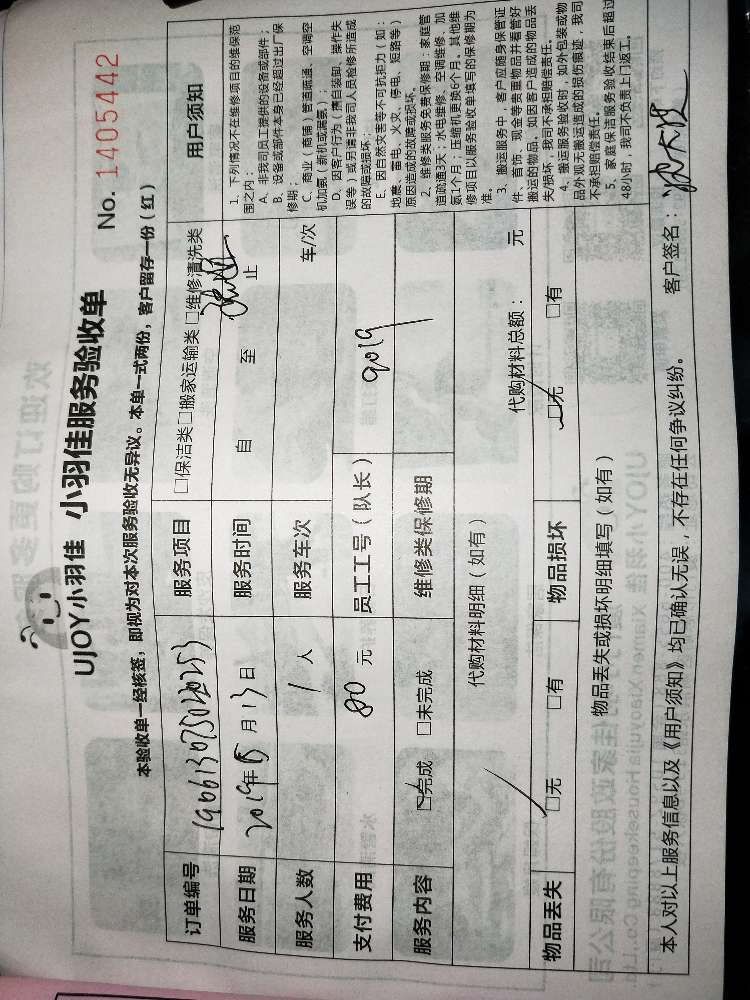 UJOY小羽佳 小羽佳服务验收单
No. 1405442
本验收单一经核签，即视为对本次服务验收无异议。本单一式两份，客户留存一份（红）
订单编号
服务项目 □保洁类□搬家运输类 □维修清洗类
服务日期 2019年 月13日
服务时间 自 至 止
服务人数 1 人
服务车次 车/次
支付费用 80 元
员工工号（队长） 9019
服务内容 □完成 □未完成
维修类保修期
代购材料明细（如有） 代购材料总额： 元
物品丢失 □无 □有
物品损坏 □无 □有
物品丢失或损坏明细填写（如有）
用户须知
1、下列情况不在维修项目的维保范
围之内：
A、非我司员工提供的设备或部件；
B、设备或部件本身已经超过出厂保
修期；
C、商业（商铺）管道疏通、空调空
机加氨（新机或漏氨）；
D、因客户行为（擅自装卸、操作失
误等）或另请非我司人员检修所造成
的故障或损坏；
E、因自然灾害等不可抗拒力（如：
地震、雷电、火灾、停电、短路等）
原因造成的故障或损坏。
2、维修类服务免费保修期：家庭管
道疏通3天；水电维修、空调维修、加
氨1个月；压缩机更换6个月。其他维
修项目以服务验收单填写的保修期为
准。
3、搬运服务中，客户应随身保管证
件、首饰、现金等贵重物品并看管好
搬运的物品，如因客户造成的物品丢
失/损坏，我司不承担赔偿责任。
4、搬运服务验收时，如外包装或物
品外观无搬运造成的损伤痕迹，我司
不承担赔偿责任。
5、家庭保洁服务验收结束后超过
48小时，我司不负责上门返工。
本人对以上服务信息以及《用户须知》均已确认无误，不存在任何争议纠纷。 客户签名：